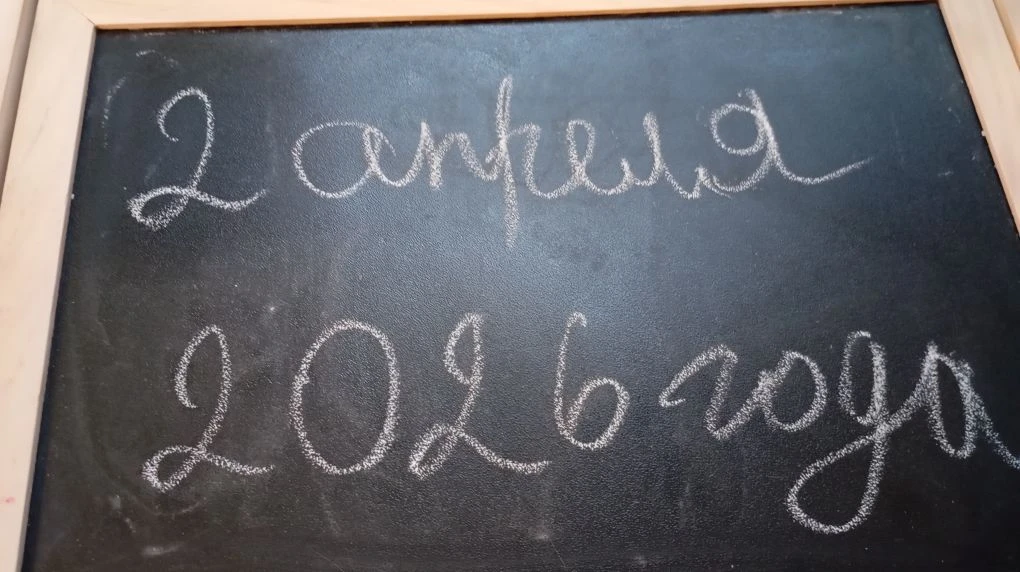 2 апреля
2026 года